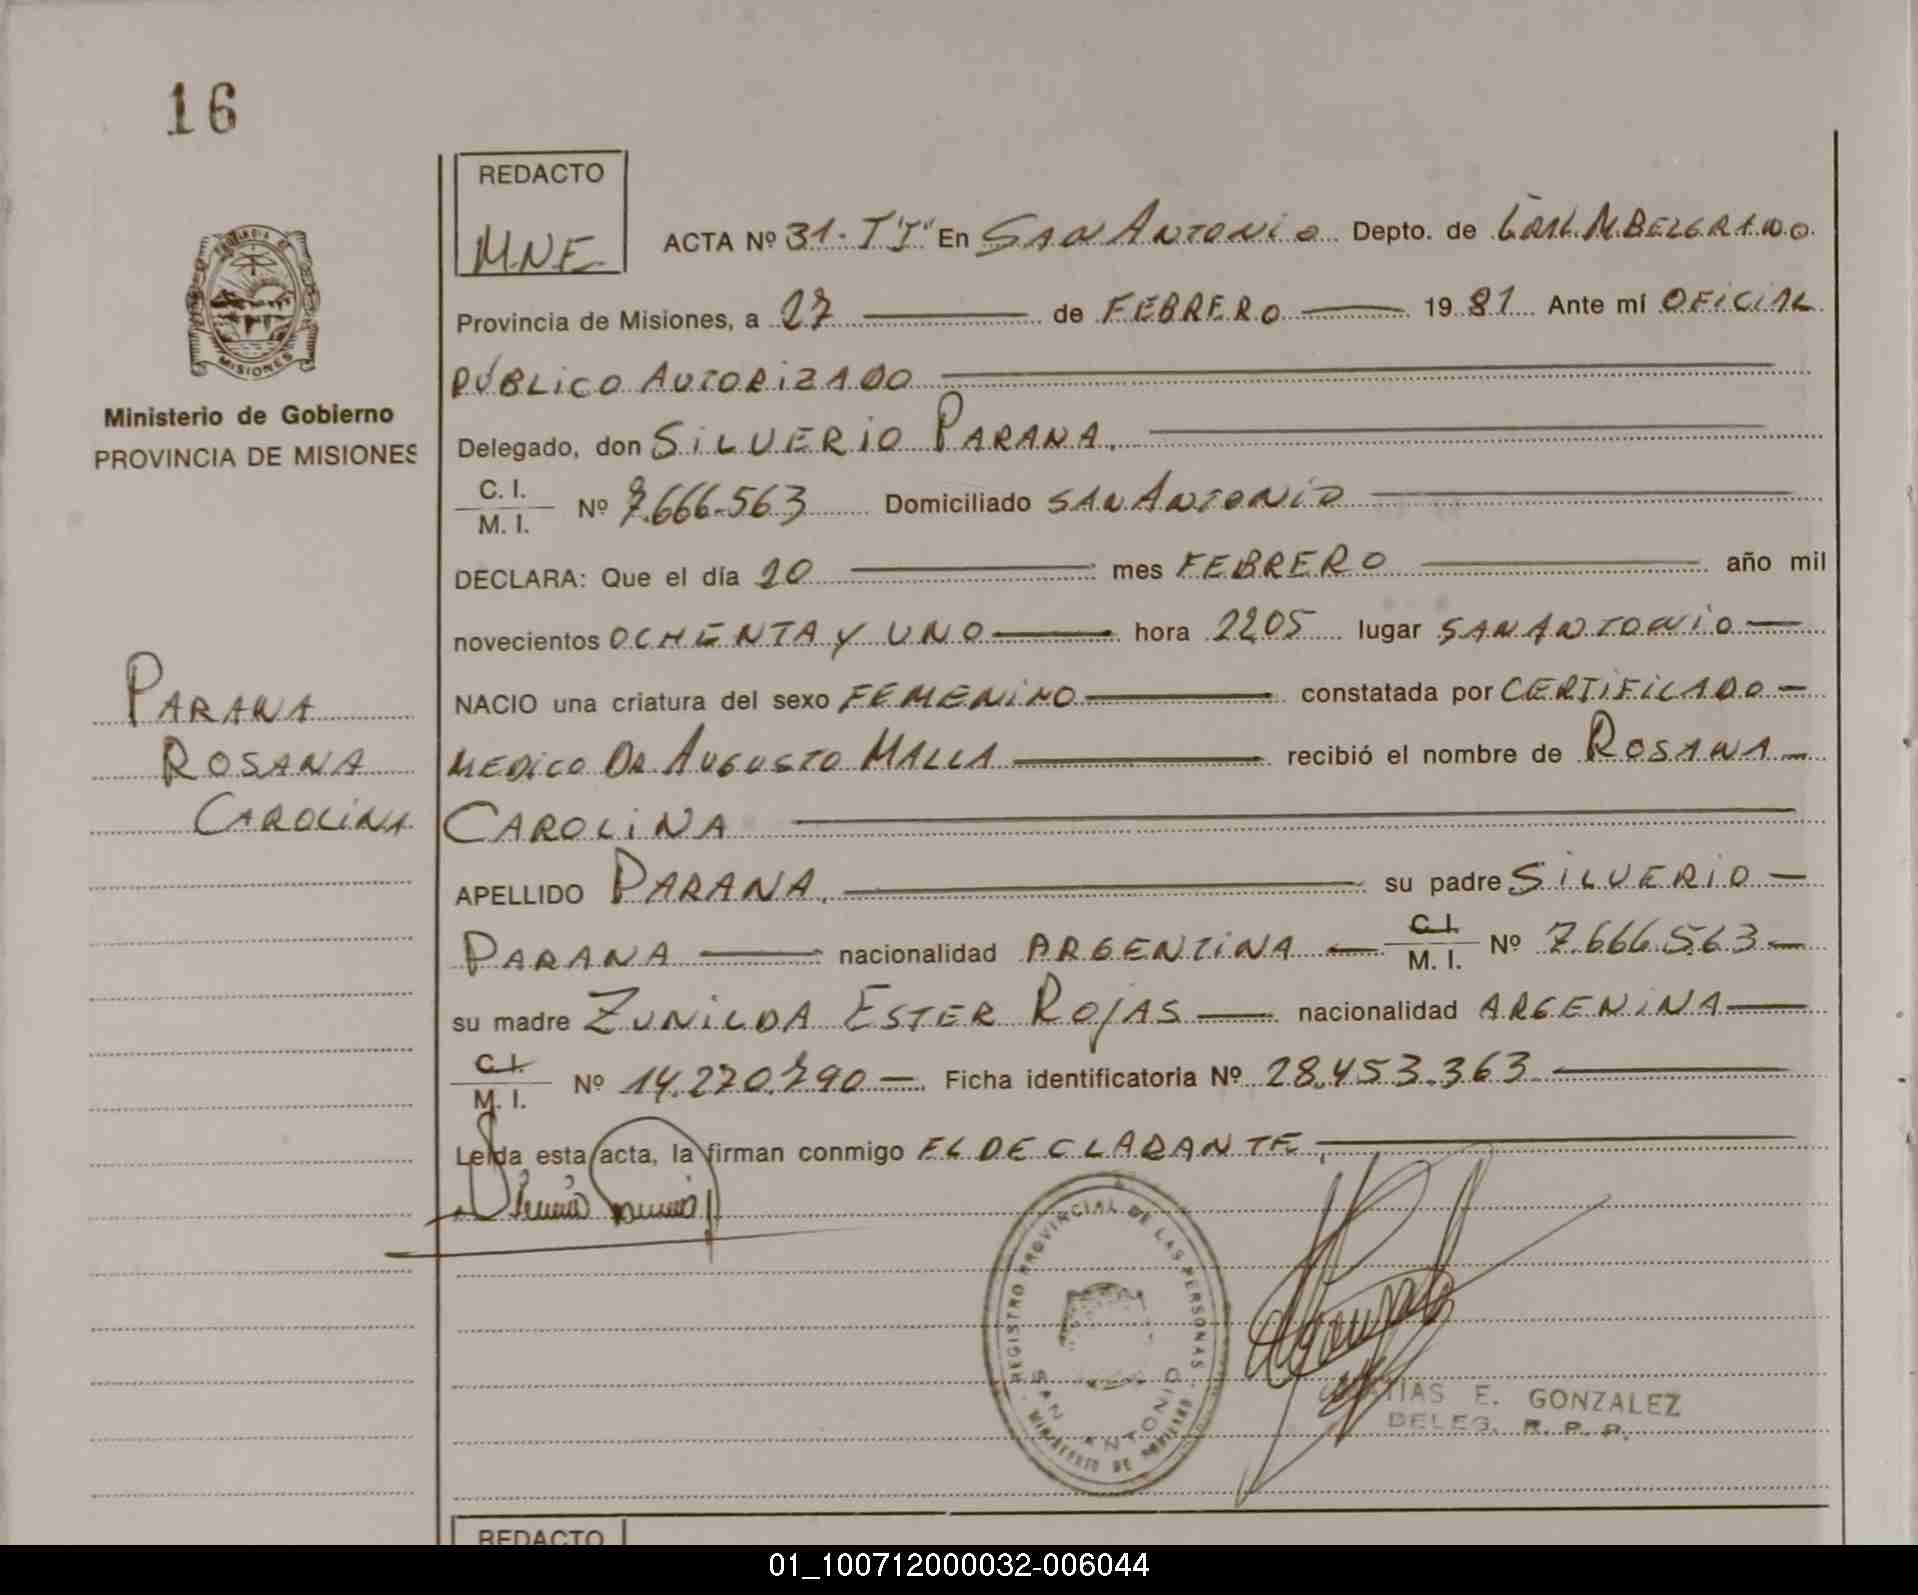 16
REDACTO
M.N.E.
ACTA Nº 31- T"I" En SAN ANTONIO Depto. de GRAL. M. BELGRANO.
Provincia de Misiones, a 27 de FEBRERO 1981 Ante mí OFICIAL
PÚBLICO AUTORIZADO
Ministerio de Gobierno
PROVINCIA DE MISIONES
MISIONES
Delegado, don SILVERIO PARANA.
C. I.
M. I. Nº 7.666.563 Domiciliado SAN ANTONIO
DECLARA: Que el día 20 mes FEBRERO año mil
novecientos OCHENTA Y UNO hora 2205 lugar SAN ANTONIO
PARANA
ROSANA
CAROLINA
NACIO una criatura del sexo FEMENINO constatada por CERTIFICADO
MEDICO DR. AUGUSTO MALLA recibió el nombre de ROSANA
CAROLINA
APELLIDO PARANA. su padre SILVERIO
PARANA nacionalidad ARGENTINA C.I. M. I. Nº 7.666.563
su madre ZUNILDA ESTER ROJAS nacionalidad ARGENINA
C.I. M. I. Nº 14.270.790 Ficha identificatoria Nº 28.453.363
Leída esta acta, la firman conmigo EL DECLARANTE,
REGISTRO PROVINCIAL DE LAS PERSONAS
SAN ANTONIO
MINISTERIO DE GOBIERNO
E. GONZALEZ
DELEG. R. P. P.
REDACTO
01_100712000032-006044